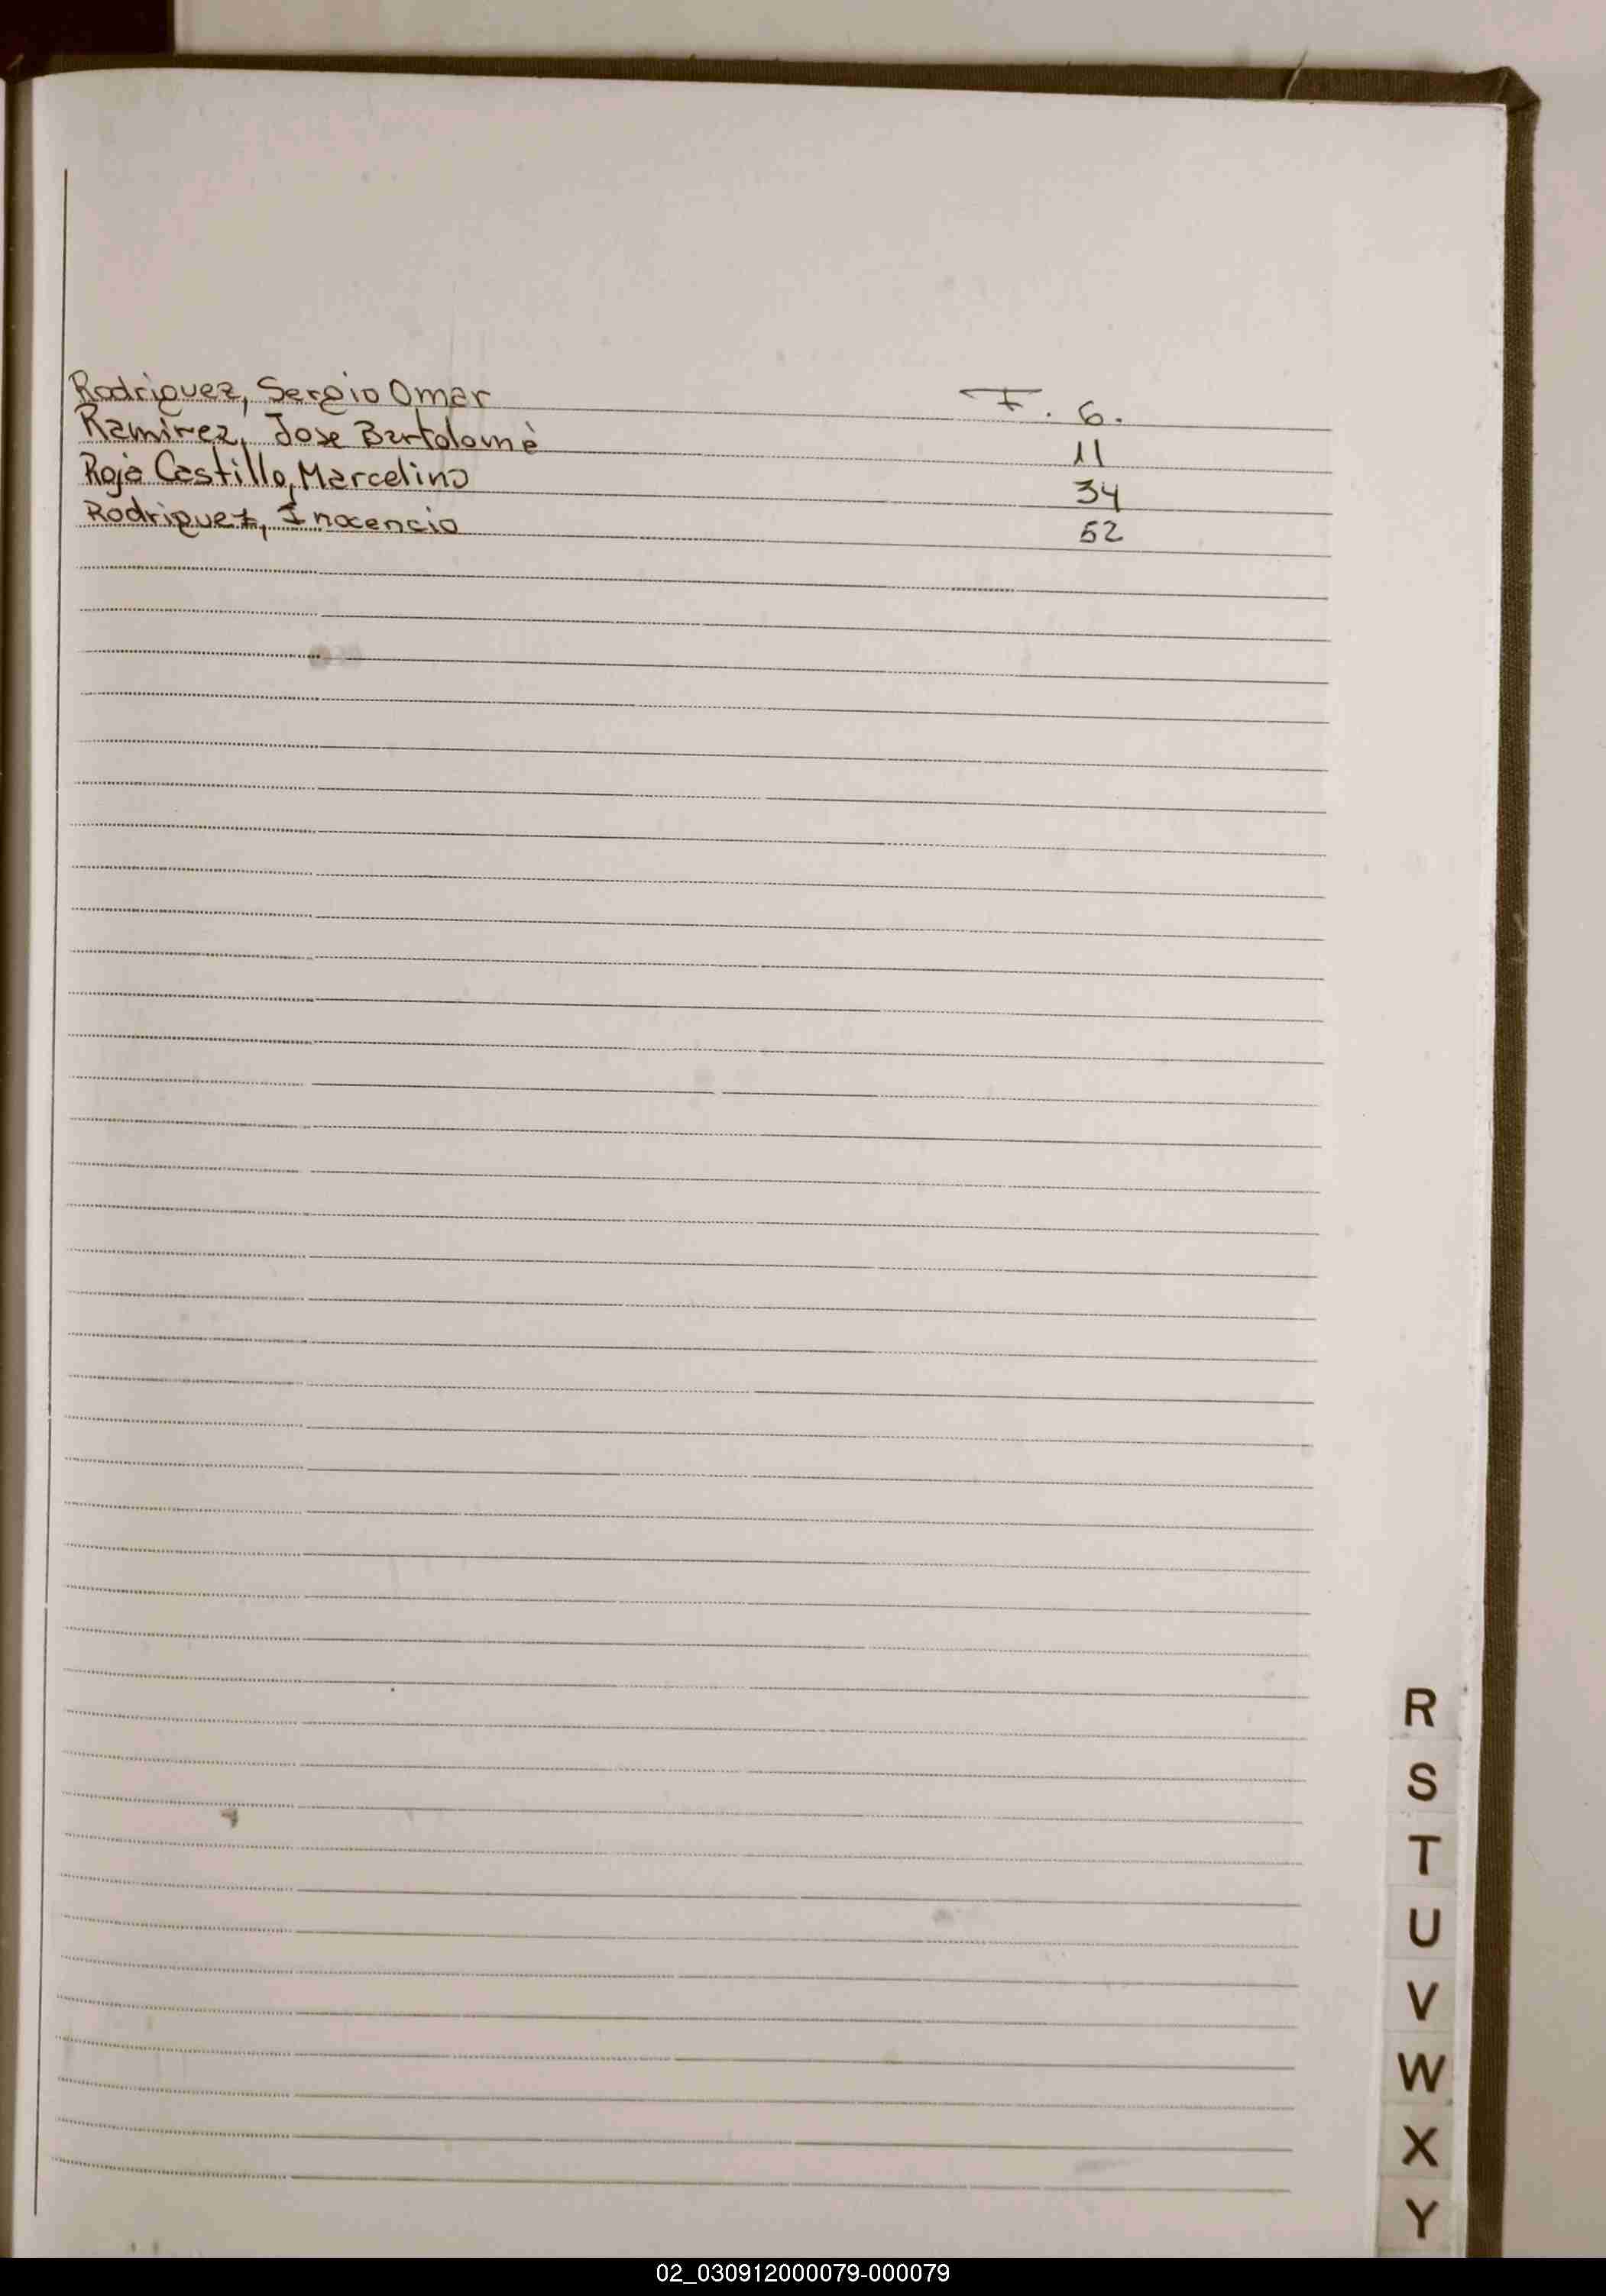 Rodriguez, Sergio Omar F. 6.
Ramirez, Jose Bartolomè 11
Roja Castillo, Marcelino 34
Rodriguez, Inocencio 52
R
S
T
U
V
W
X
Y
02_030912000079-000079